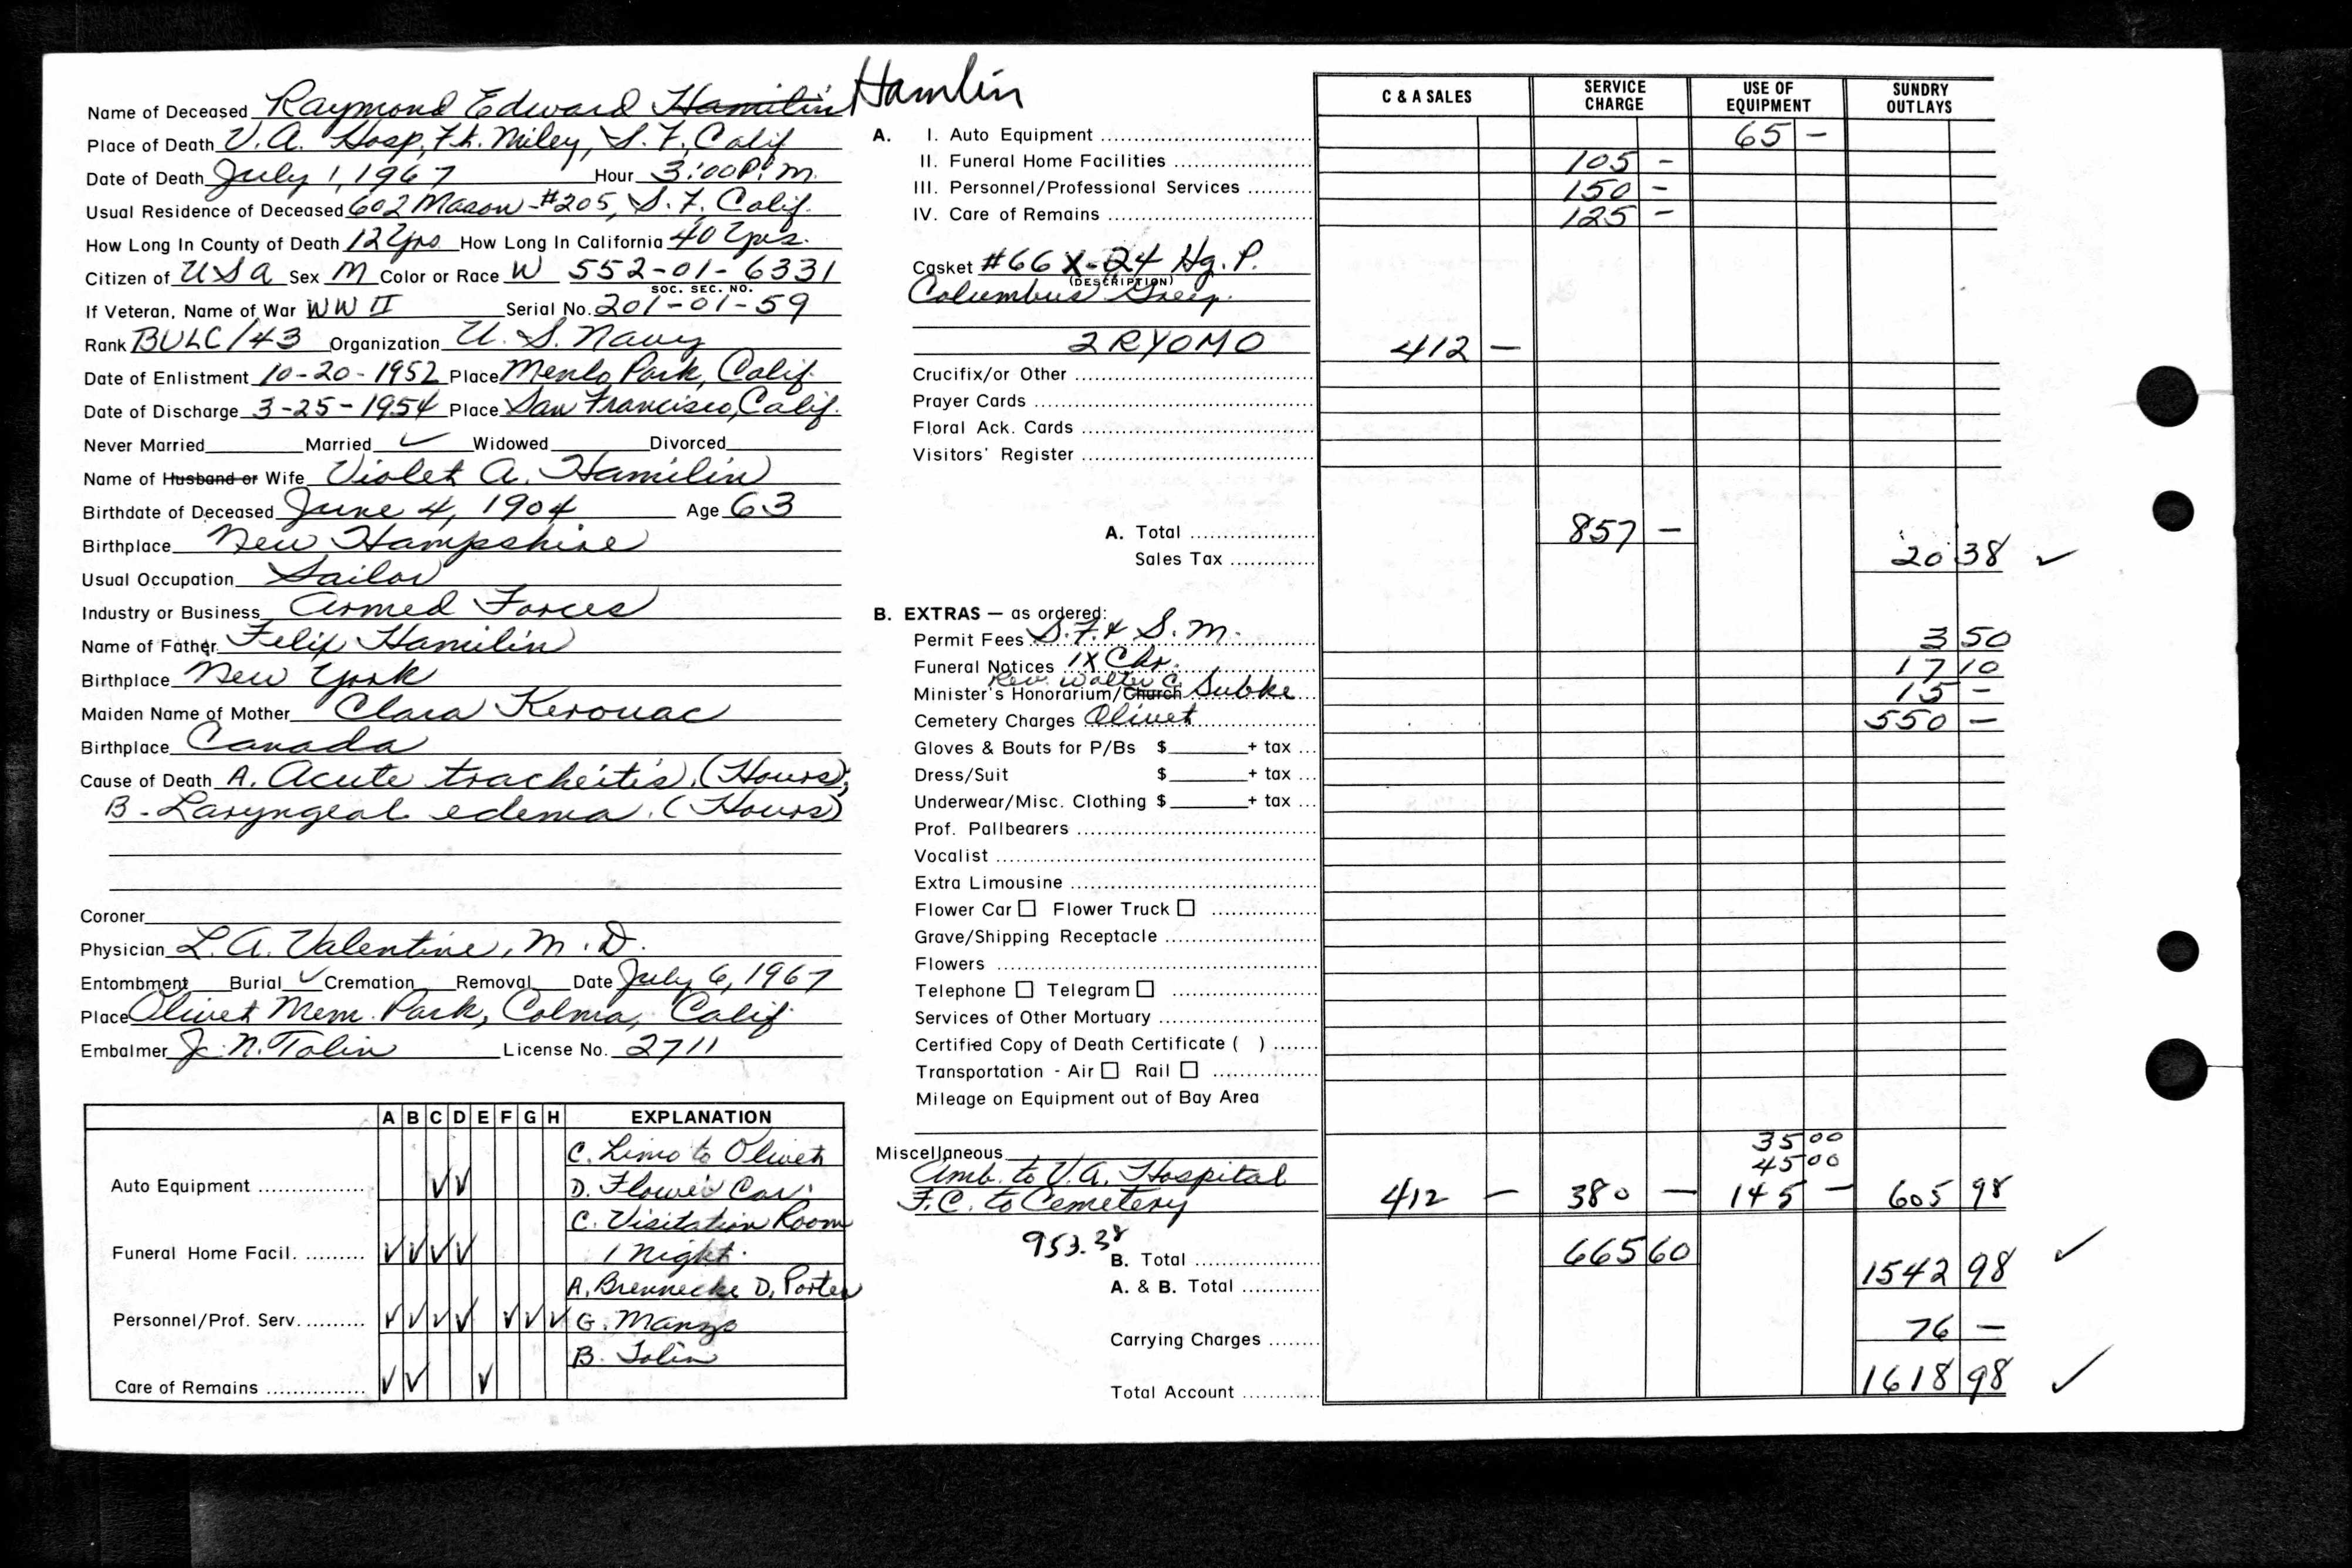 Name of Deceased Raymond Edward Hamilin Hamlin
Place of Death V.A. Hosp, Ft. Miley, S.F. Calif
Date of Death July 1, 1967 Hour 3:00 P.m.
Usual Residence of Deceased 602 Mason-#205, S.F. Calif.
How Long In County of Death 12 Yrs How Long In California 40 Yrs.
Citizen of USA Sex M Color or Race W 552-01-6331
SOC. SEC. NO.
If Veteran, Name of War WW II Serial No. 201-01-59
Rank BULC/43 Organization U.S. Navy
Date of Enlistment 10-20-1952 Place Menlo Park, Calif.
Date of Discharge 3-25-1954 Place San Francisco, Calif.
Never Married Married ✓ Widowed Divorced
Name of Husband or Wife Violet A. Hamilin
Birthdate of Deceased June 4, 1904 Age 63
Birthplace New Hampshire
Usual Occupation Sailor
Industry or Business Armed Forces
Name of Father Felix Hamilin
Birthplace New York
Maiden Name of Mother Clara Kerouac
Birthplace Canada
Cause of Death A. Acute tracheitis. (Hours);
B - Laryngeal edema. (Hours)
Coroner
Physician L.A. Valentine, M.D.
Entombment Burial ✓ Cremation Removal Date July 6, 1967
Place Olivet Mem. Park, Colma, Calif.
Embalmer J. N. Tolin License No. 2711
A B C D E F G H EXPLANATION
C. Limo to Olivet
Auto Equipment ✓ ✓ D. Flower Car.
C. Visitation Room
Funeral Home Facil. ✓ ✓ ✓ ✓ 1 Night.
A. Brennecke D. Porter
Personnel/Prof. Serv. ✓ ✓ ✓ ✓ ✓ ✓ ✓ G. Manzo
B. Tolin
Care of Remains ✓ ✓ ✓
C & A SALES SERVICE CHARGE USE OF EQUIPMENT SUNDRY OUTLAYS
A. I. Auto Equipment 65 -
II. Funeral Home Facilities 105 -
III. Personnel/Professional Services 150 -
IV. Care of Remains 125 -
Casket #66 X-24 Hg. P.
(DESCRIPTION)
Columbus
2RYOMO 412 -
Crucifix/or Other
Prayer Cards
Floral Ack. Cards
Visitors' Register
A. Total 857 -
Sales Tax 20 38 ✓
B. EXTRAS — as ordered:
Permit Fees S.F. & S.M. 3 50
Funeral Notices 1X Chr. 17 10
Rev. Walter C.
Minister's Honorarium/Church Subke 15 -
Cemetery Charges Olivet 550 -
Gloves & Bouts for P/Bs $ + tax
Dress/Suit $ + tax
Underwear/Misc. Clothing $ + tax
Prof. Pallbearers
Vocalist
Extra Limousine
Flower Car □ Flower Truck □
Grave/Shipping Receptacle
Flowers
Telephone □ Telegram □
Services of Other Mortuary
Certified Copy of Death Certificate ( )
Transportation - Air □ Rail □
Mileage on Equipment out of Bay Area
35 00
Miscellaneous 45 00
Amb. to V.A. Hospital
F.C. to Cemetery 412 - 380 - 145 - 605 98
953.38
B. Total 665 60
A. & B. Total 1542 98 ✓
Carrying Charges 76 -
Total Account 1618 98 ✓